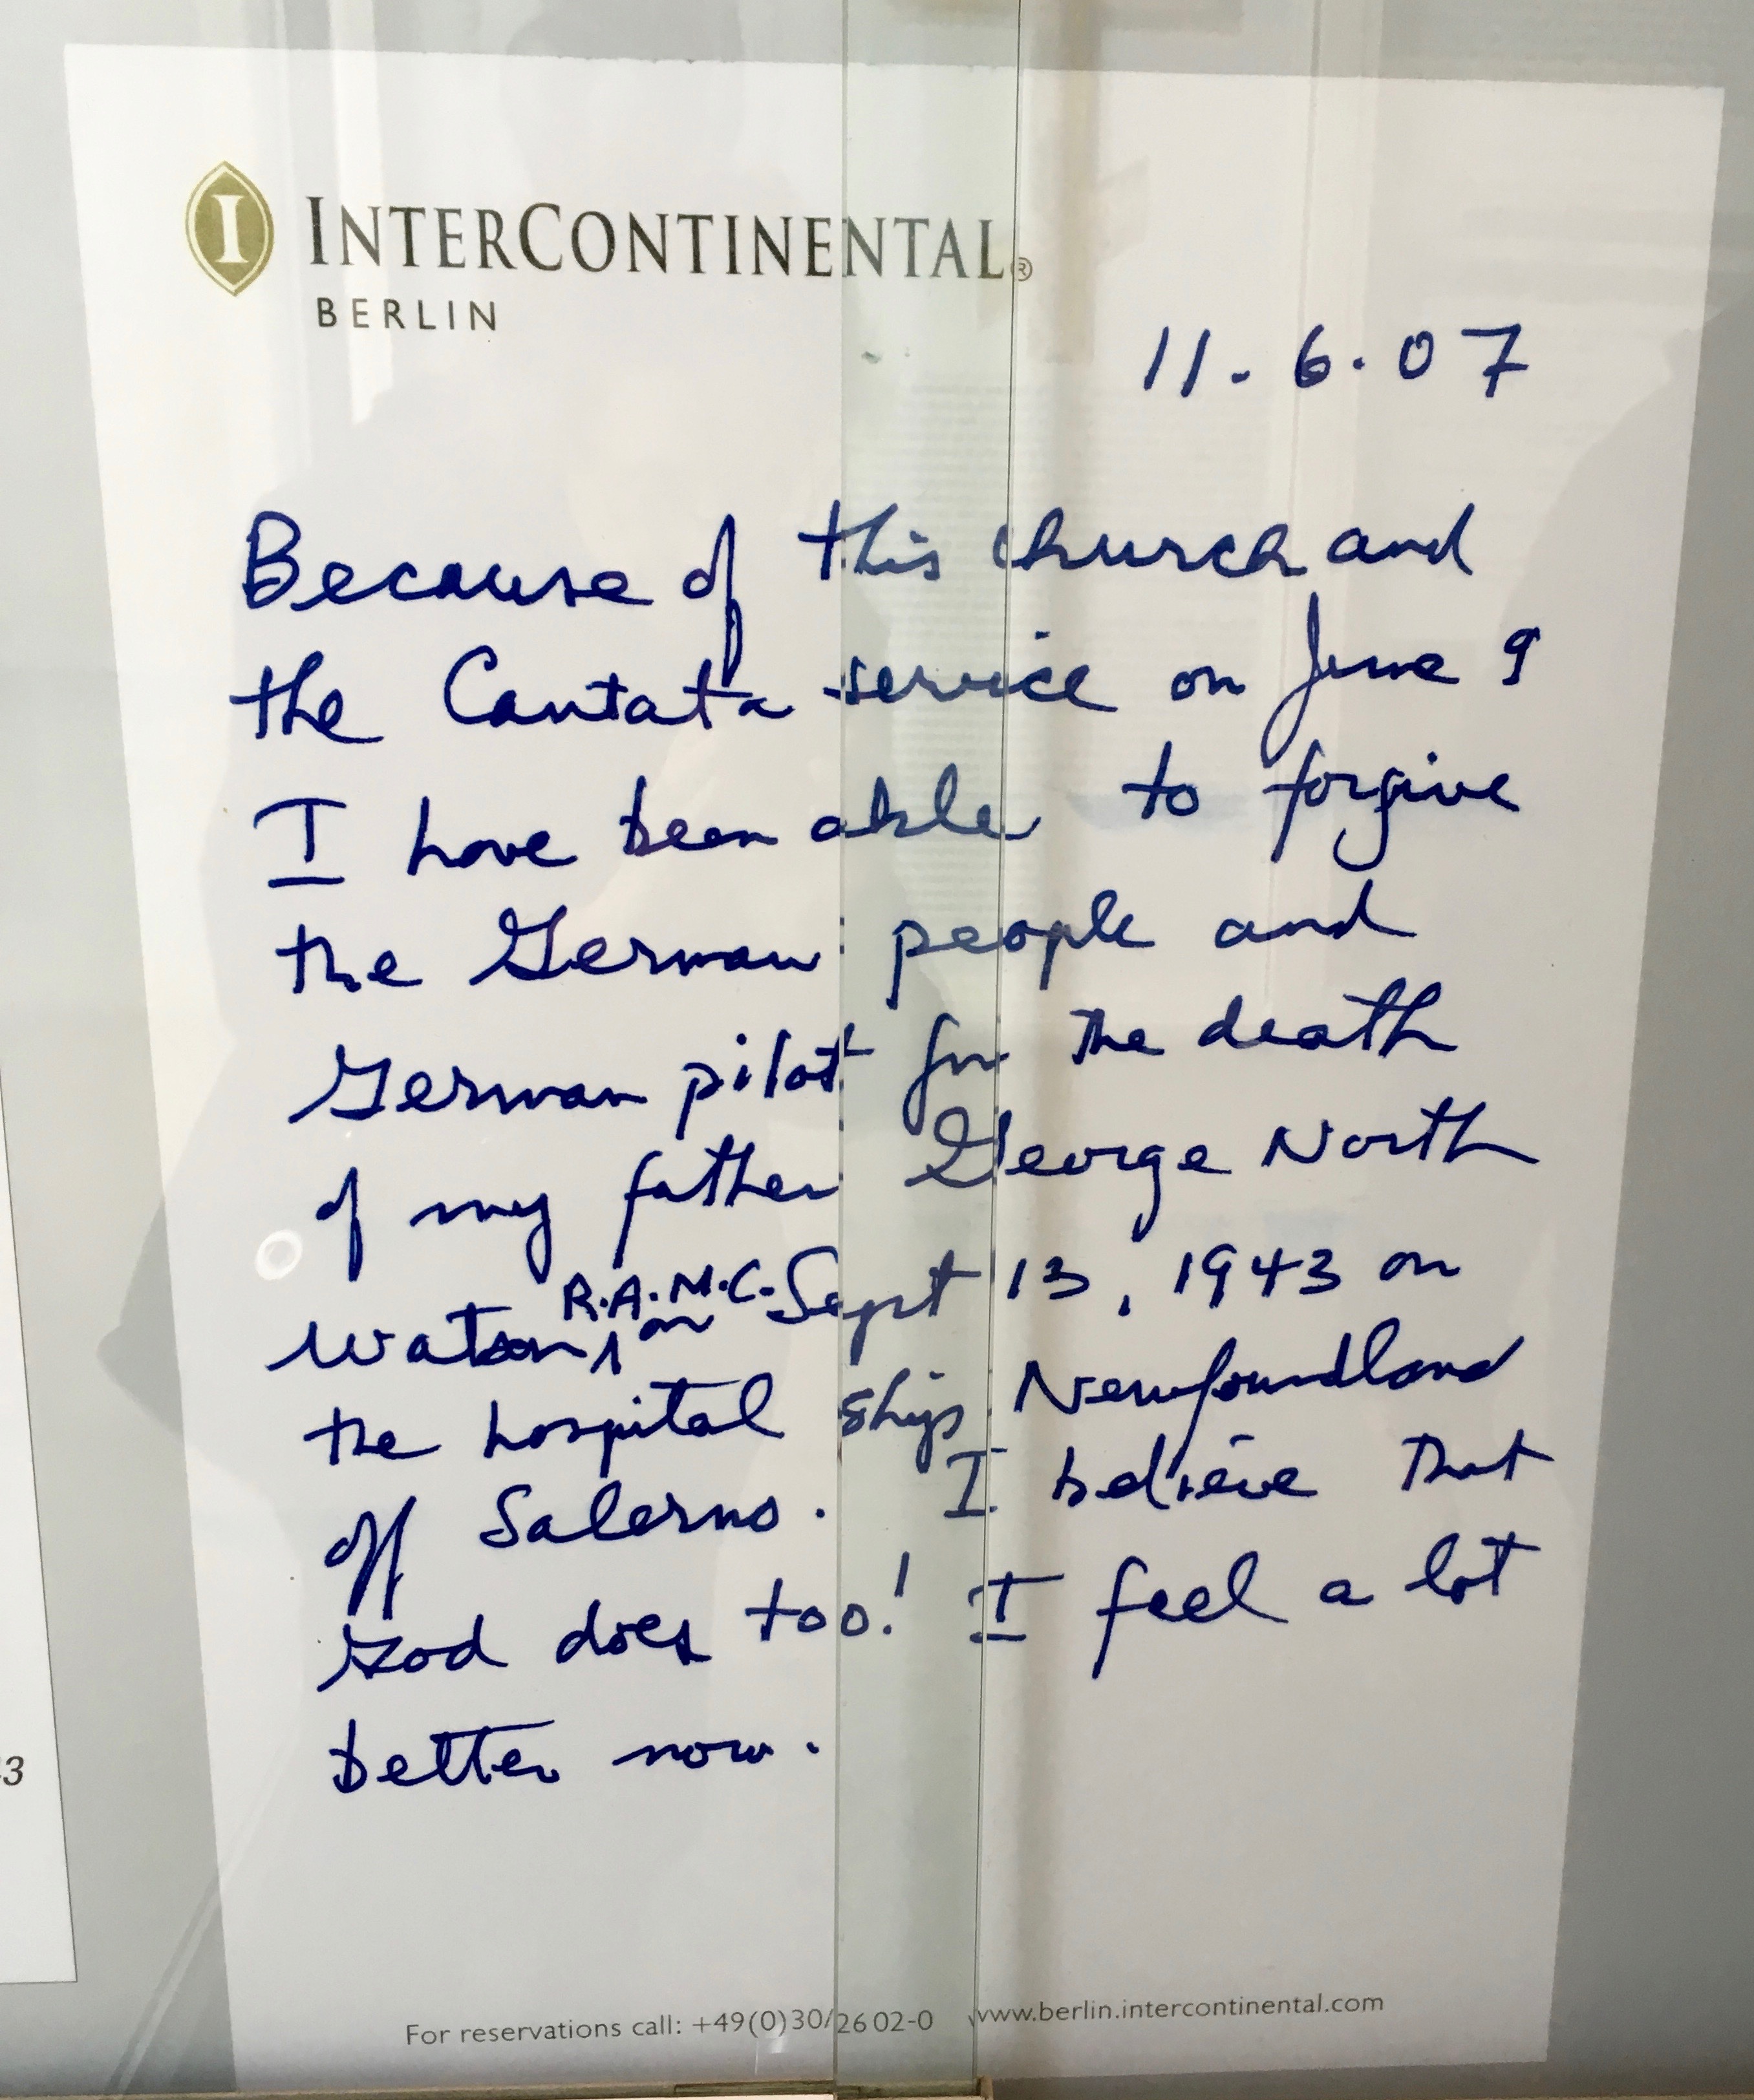 INTERCONTINENTAL®
BERLIN
11. 6. 07
Because of this church and
the Cantata service on June 9
I have been able to forgive
the German people and
German pilot for the death
of my father George North
Watson, R.A.M.C. on Sept 13, 1943 on
the hospital ship Newfoundland
off Salerno. I believe that
God does too! I feel a lot
better now.
3
For reservations call: +49(0)30/26 02-0 www.berlin.intercontinental.com